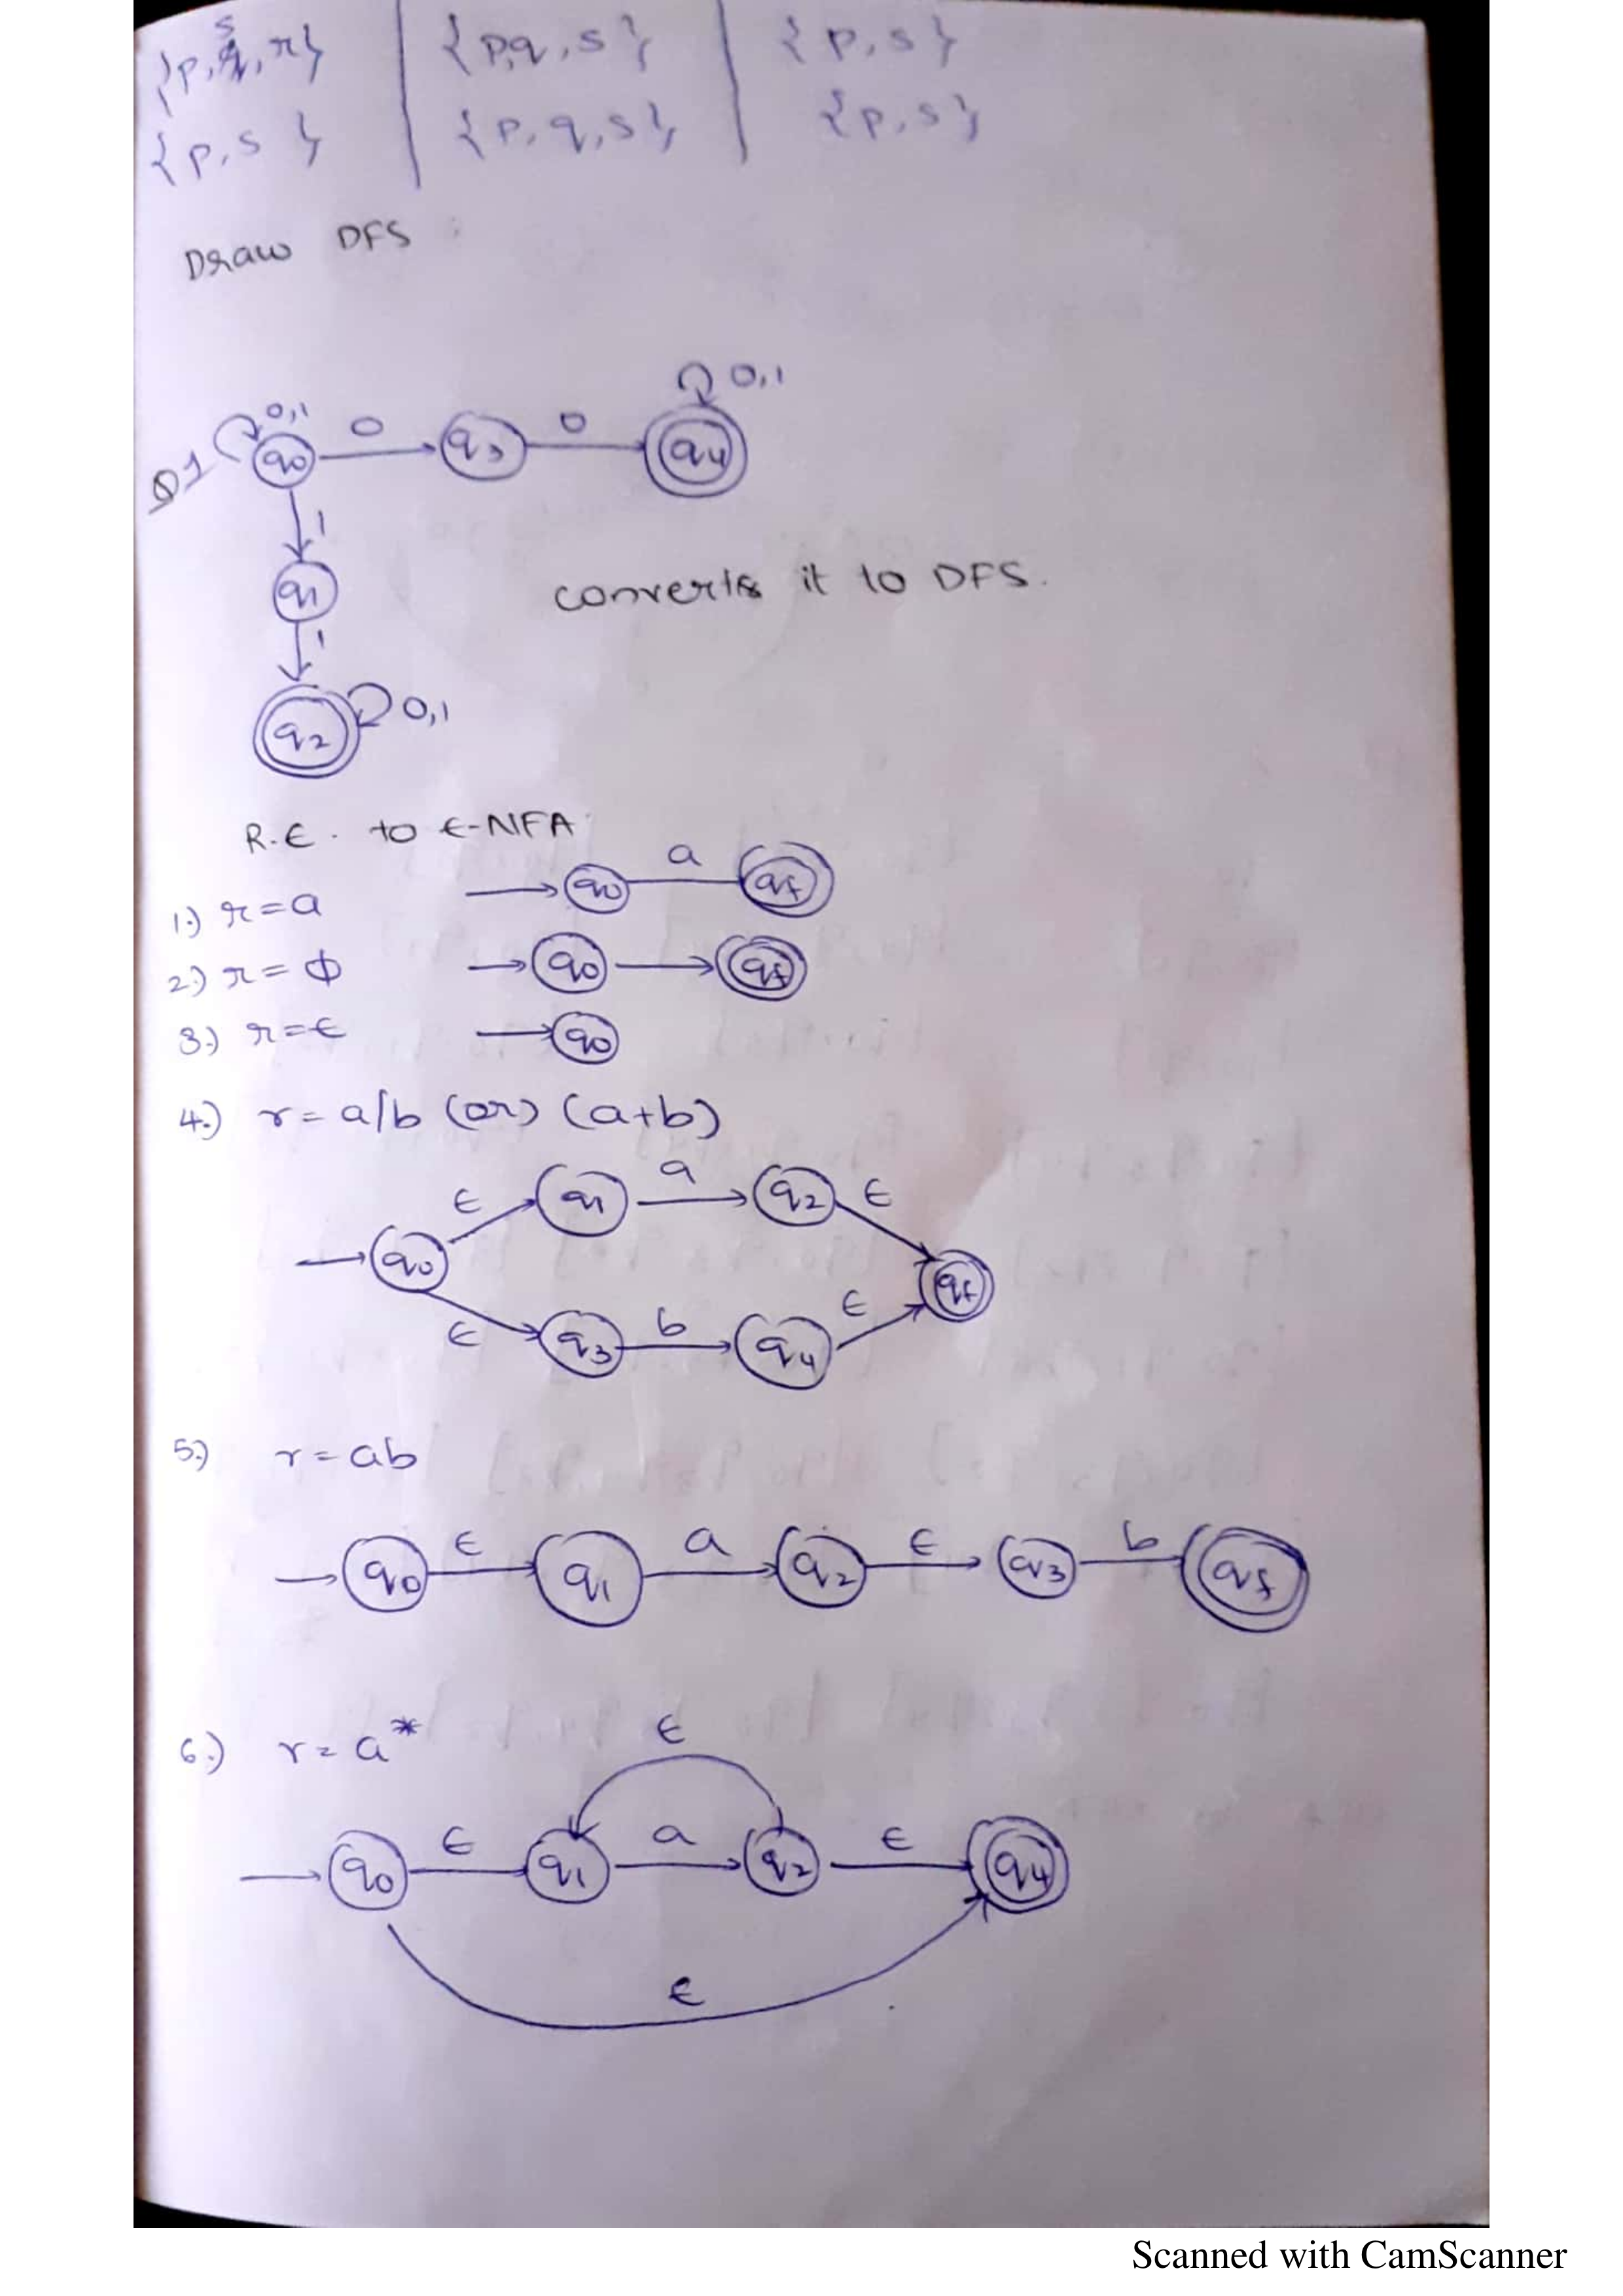 {p, s, r} | {p,q,s} | {p,s}
{p,s} | {p,q,s} | {p,s}
Draw DFS :
0,1
0,1 0 0
q0 q3 q4
1
q1
converts it to DFS.
1
q2 0,1
R.E. to ϵ-NFA
1.) r=a q0 a qf
2.) r=ϕ q0 qf
3.) r=ϵ q0
4.) r=a/b (or) (a+b)
ϵ q1 a q2 ϵ
q0 qf
ϵ q3 b q4 ϵ
5.) r=ab
q0 ϵ q1 a q2 ϵ q3 b qf
6.) r=a*
ϵ
q0 ϵ q1 a q2 ϵ q4
ϵ
Scanned with CamScanner